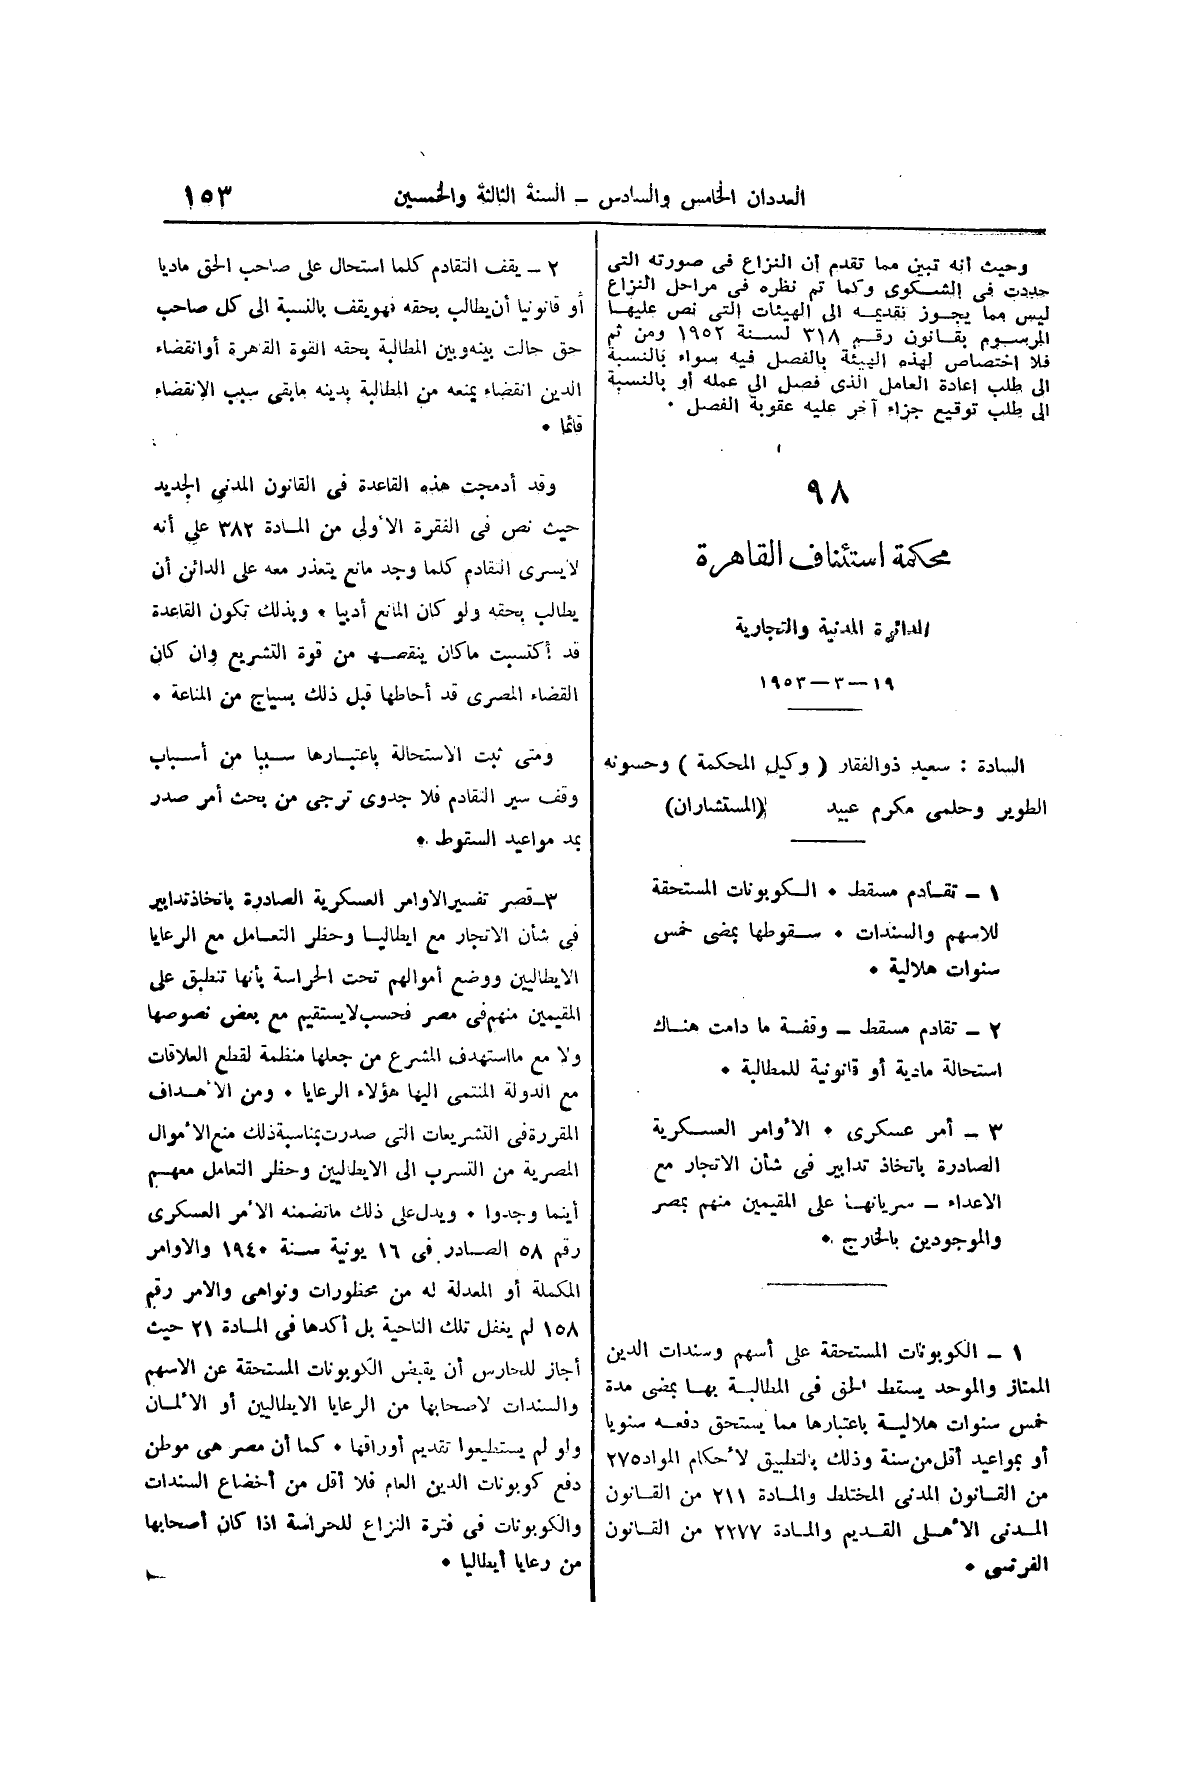 العددان الخامس والسادس – السنة الثالثة والخمسين
١٥٣
وحيث أنه تبين مما تقدم أن النزاع فى صورته التى
حددت فى الشكوى وكما تم نظره فى مراحل النزاع
ليس مما يجوز تقديمه الى الهيئات التى نص عليها
المرسوم بقانون رقم ٣١٨ لسنة ١٩٥٢ ومن ثم
فلا اختصاص لهذه الهيئة بالفصل فيه سواء بالنسبة
الى طلب إعادة العامل الذى فصل الى عمله أو بالنسبة
الى طلب توقيع جزاء آخر عليه عقوبة الفصل .
٩٨
محكمة استئناف القاهرة
الدائرة المدنية والتجارية
١٩ – ٣ – ١٩٥٣
السادة : سعيد ذوالفقار ( وكيل المحكمة ) وحسونه
الطوير وحلمى مكرم عبيد (المستشاران)
١ – تقادم مسقط . الكوبونات المستحقة
للاسهم والسندات . سقوطها بمضى خمس
سنوات هلالية .
٢ – تقادم مسقط – وقفة ما دامت هناك
استحالة مادية أو قانونية للمطالبة .
٣ – أمر عسكرى . الأوامر العسكرية
الصادرة باتخاذ تدابير فى شأن الاتجار مع
الاعداء – سريانها على المقيمين منهم بمصر
والموجودين بالخارج .
١ – الكوبونات المستحقة على أسهم وسندات الدين
الممتاز والموحد يسقط الحق فى المطالبة بها بمضى مدة
خمس سنوات هلالية باعتبارها مما يستحق دفعه سنويا
أو بمواعيد أقل من سنة وذلك بالتطبيق لأحكام المواد ٢٧٥
من القانون المدنى المختلط والمادة ٢١١ من القانون
المدنى الأهلى القديم والمادة ٢٢٧٧ من القانون
الفرنسى .
٢ – يقف التقادم كلما استحال على صاحب الحق ماديا
أو قانونيا أن يطالب بحقه فهو يقف بالنسبة الى كل صاحب
حق حالت بينه وبين المطالبة بحقه القوة القاهرة أو انقضاء
الدين انقضاء يمنعه من المطالبة بدينه مابقى سبب الانقضاء
قائما .
وقد أدمجت هذه القاعدة فى القانون المدنى الجديد
حيث نص فى الفقرة الأولى من المادة ٣٨٢ على أنه
لايسرى التقادم كلما وجد مانع يتعذر معه على الدائن أن
يطالب بحقه ولو كان المانع أدبيا . وبذلك تكون القاعدة
قد أكتسبت ماكان ينقصها من قوة التشريع وان كان
القضاء المصرى قد أحاطها قبل ذلك بسياج من المناعة .
ومتى ثبت الاستحالة باعتبارها سببا من أسباب
وقف سير التقادم فلا جدوى ترجى من بحث أمر صدر
بمد مواعيد السقوط .
٣–قصر تفسير الاوامر العسكرية الصادرة باتخاذ تدابير
فى شأن الاتجار مع ايطاليا وحظر التعامل مع الرعايا
الايطاليين ووضع أموالهم تحت الحراسة بأنها تنطبق على
المقيمين منهم فى مصر فحسب لايستقيم مع بعض نصوصها
ولا مع مااستهدف المشرع من جعلها منظمة لقطع العلاقات
مع الدولة المنتمى اليها هؤلاء الرعايا . ومن الأهداف
المقررة فى التشريعات التى صدرت بمناسبة ذلك منع الأموال
المصرية من التسرب الى الايطاليين وحظر التعامل معهم
أينما وجدوا . ويدل على ذلك ماتضمنه الأمر العسكرى
رقم ٥٨ الصادر فى ١٦ يونية سنة ١٩٤٠ والاوامر
المكملة أو المعدلة له من محظورات ونواهى والامر رقم
١٥٨ لم يغفل تلك الناحية بل أكدها فى المادة ٢١ حيث
أجاز للحارس أن يقبض الكوبونات المستحقة عن الاسهم
والسندات لاصحابها من الرعايا الايطاليين أو الألمان
ولو لم يستطيعوا تقديم أوراقها . كما أن مصر هى موطن
دفع كوبونات الدين العام فلا أقل من أخضاع السندات
والكوبونات فى فترة النزاع للحراسة اذا كان أصحابها
من رعايا أيطاليا .